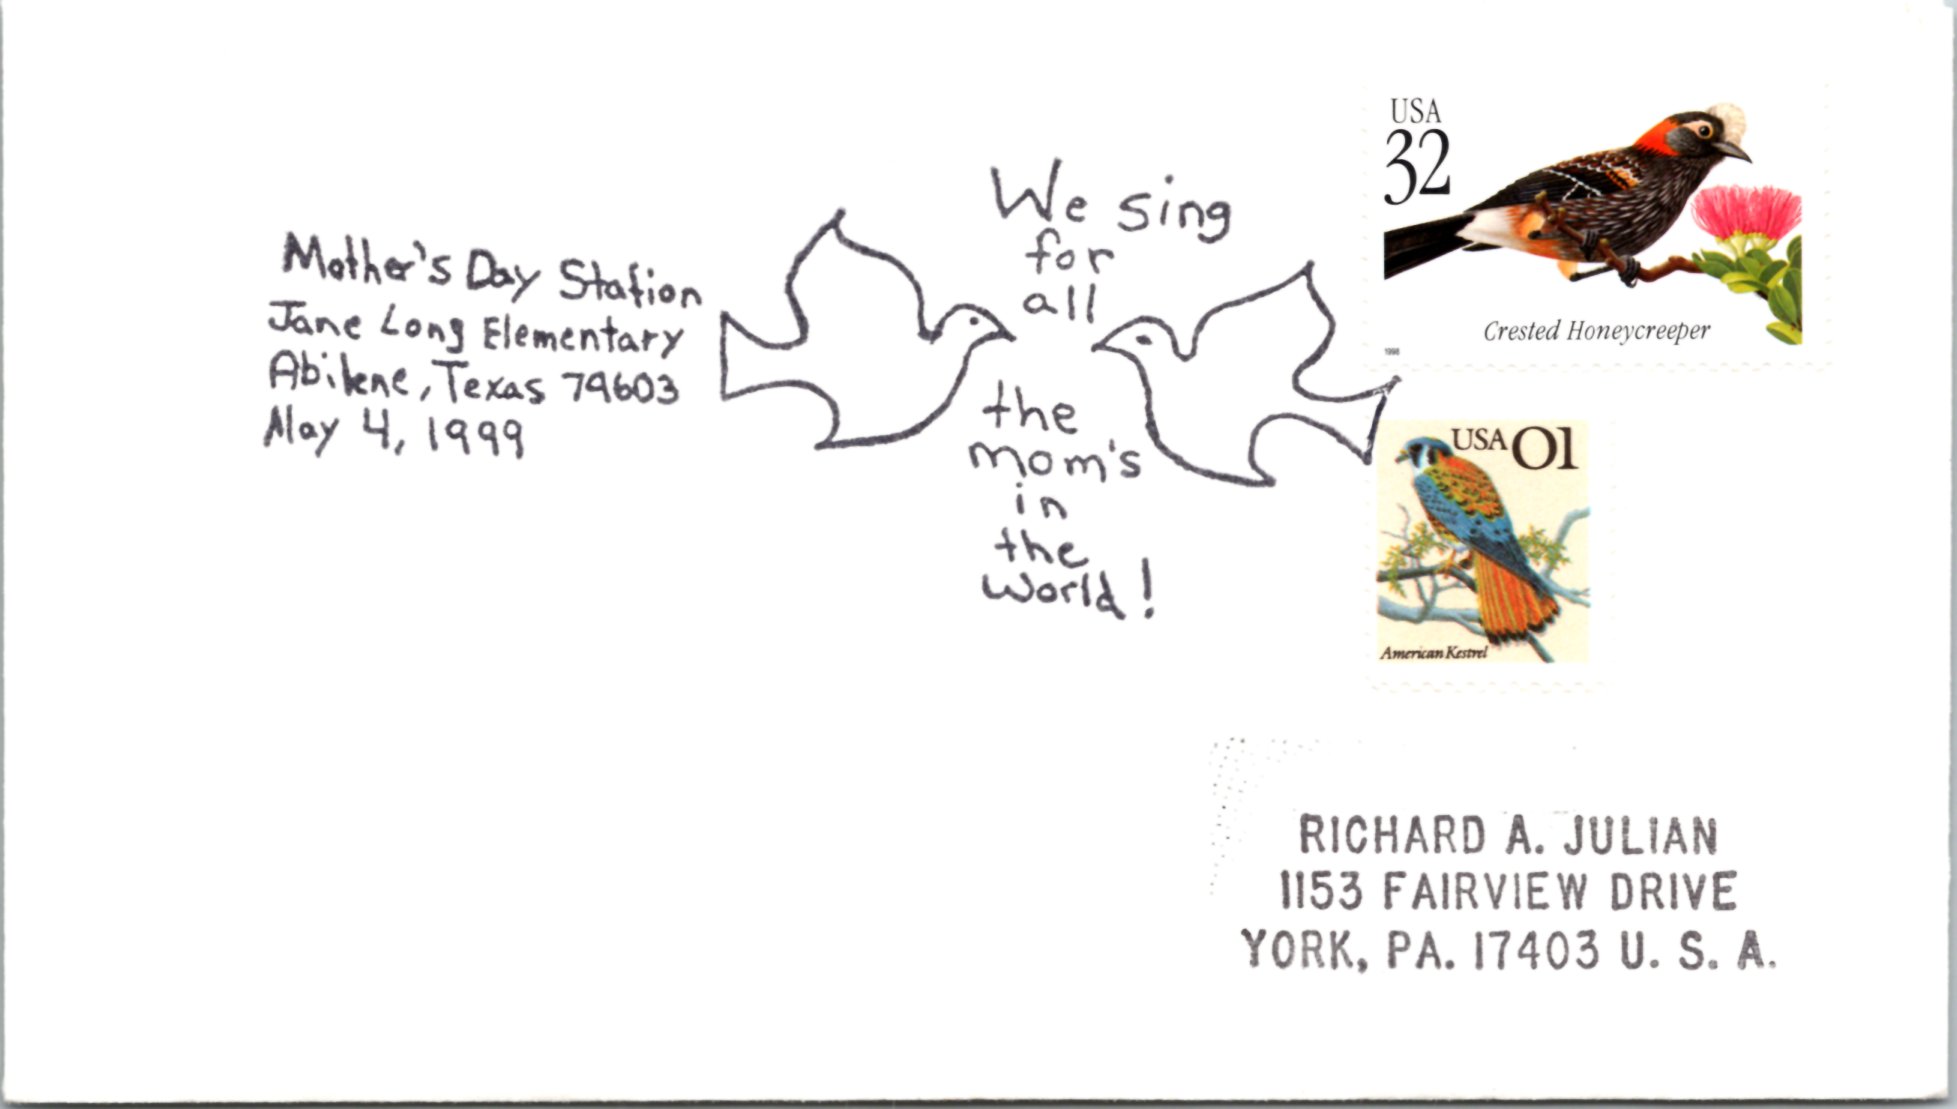 Mother's Day Station
Jane Long Elementary
Abilene, Texas 79603
May 4, 1999
We sing
for
all
the
mom's
in
the
world!
USA
32
Crested Honeycreeper
1998
USA 01
American Kestrel
RICHARD A. JULIAN
1153 FAIRVIEW DRIVE
YORK, PA. 17403 U. S. A.